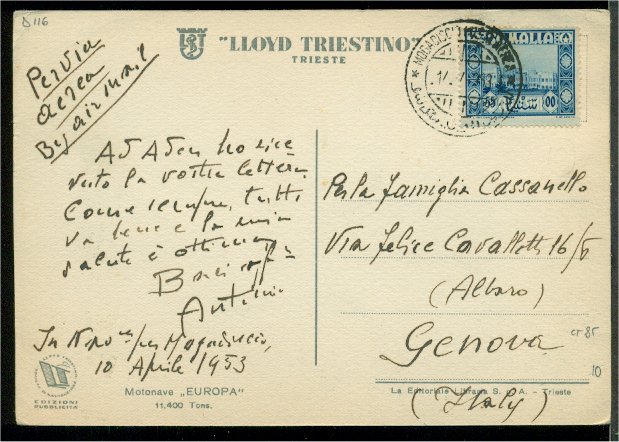 D 116
"LLOYD TRIESTINO"
TRIESTE
Per via
aerea
By air mail
MOGADISCIO
SOMALIA
00
Ad Aden ho rice
vuto la vostra lettera.
Come sempre, tutto
va bene e la mia
salute è ottima
Baci
In Navigne per Mogadiscio,
10 Aprile 1953
EDIZIONI
PUBBLICITÀ
Motonave „EUROPA"
11.400 Tons.
Per la famiglia Cassanello
Via Felice Cavallotti 16/6
(Albaro)
Genova
(Italy)
CT 85
10
La Editoriale Libraria S. p. A. - Trieste